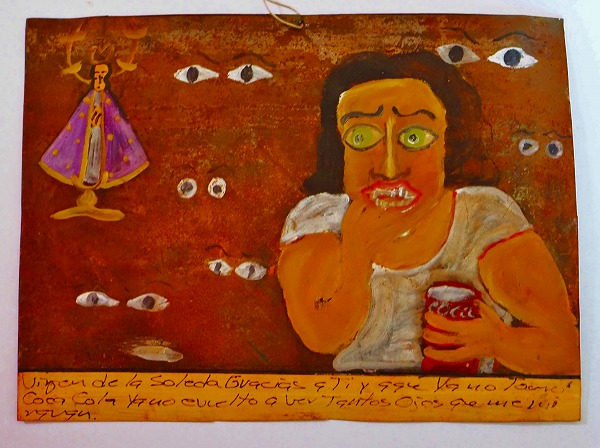 Coca
Virgen de la Soleda Gracias a Ti y aque ya no Tome
Coca Cola Ya no e vuelto a ver Tantos Ojos que me mi
raban.